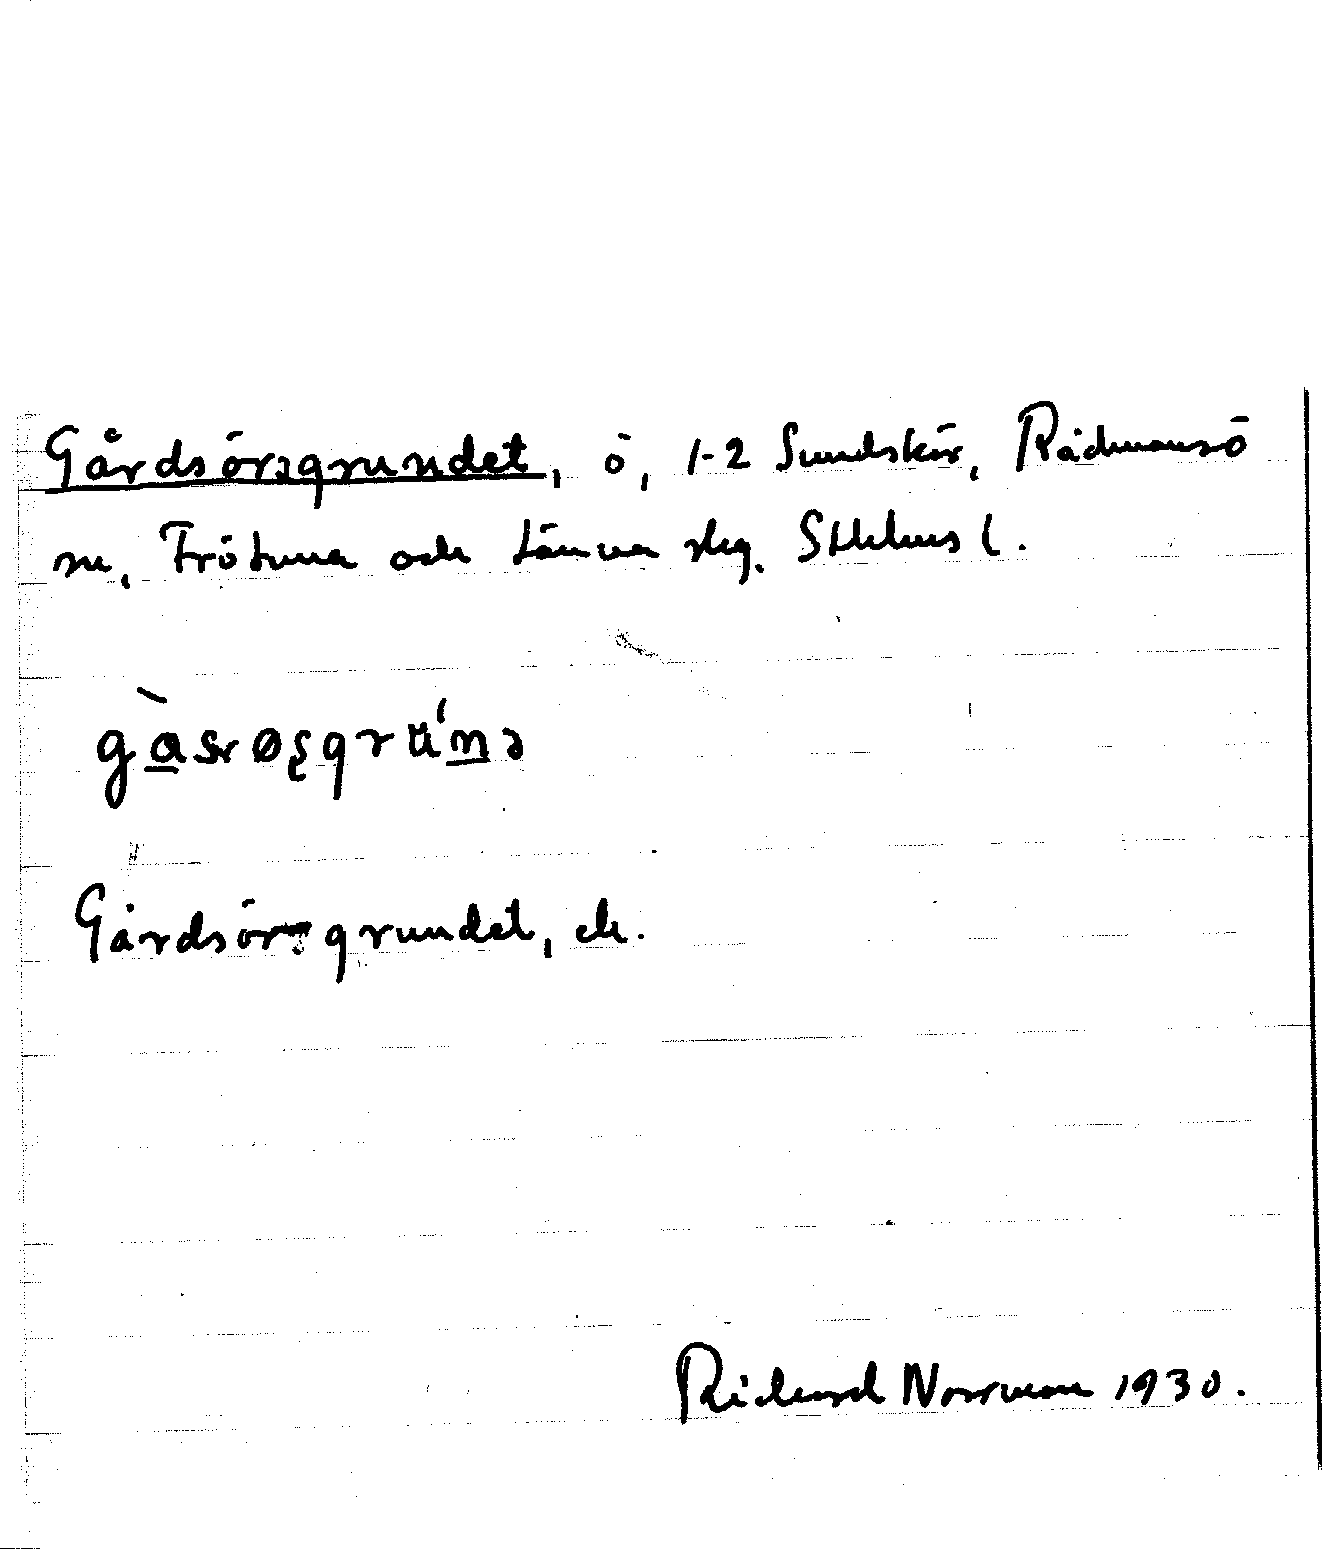 Gårdsörsgrundet, ö, 1-2 Sundskär, Rådmansö
sn, Frötuna och Länna skg. Sthlms l.
Gårdsörsgrundet, ek.
Richard Norrman 1930.